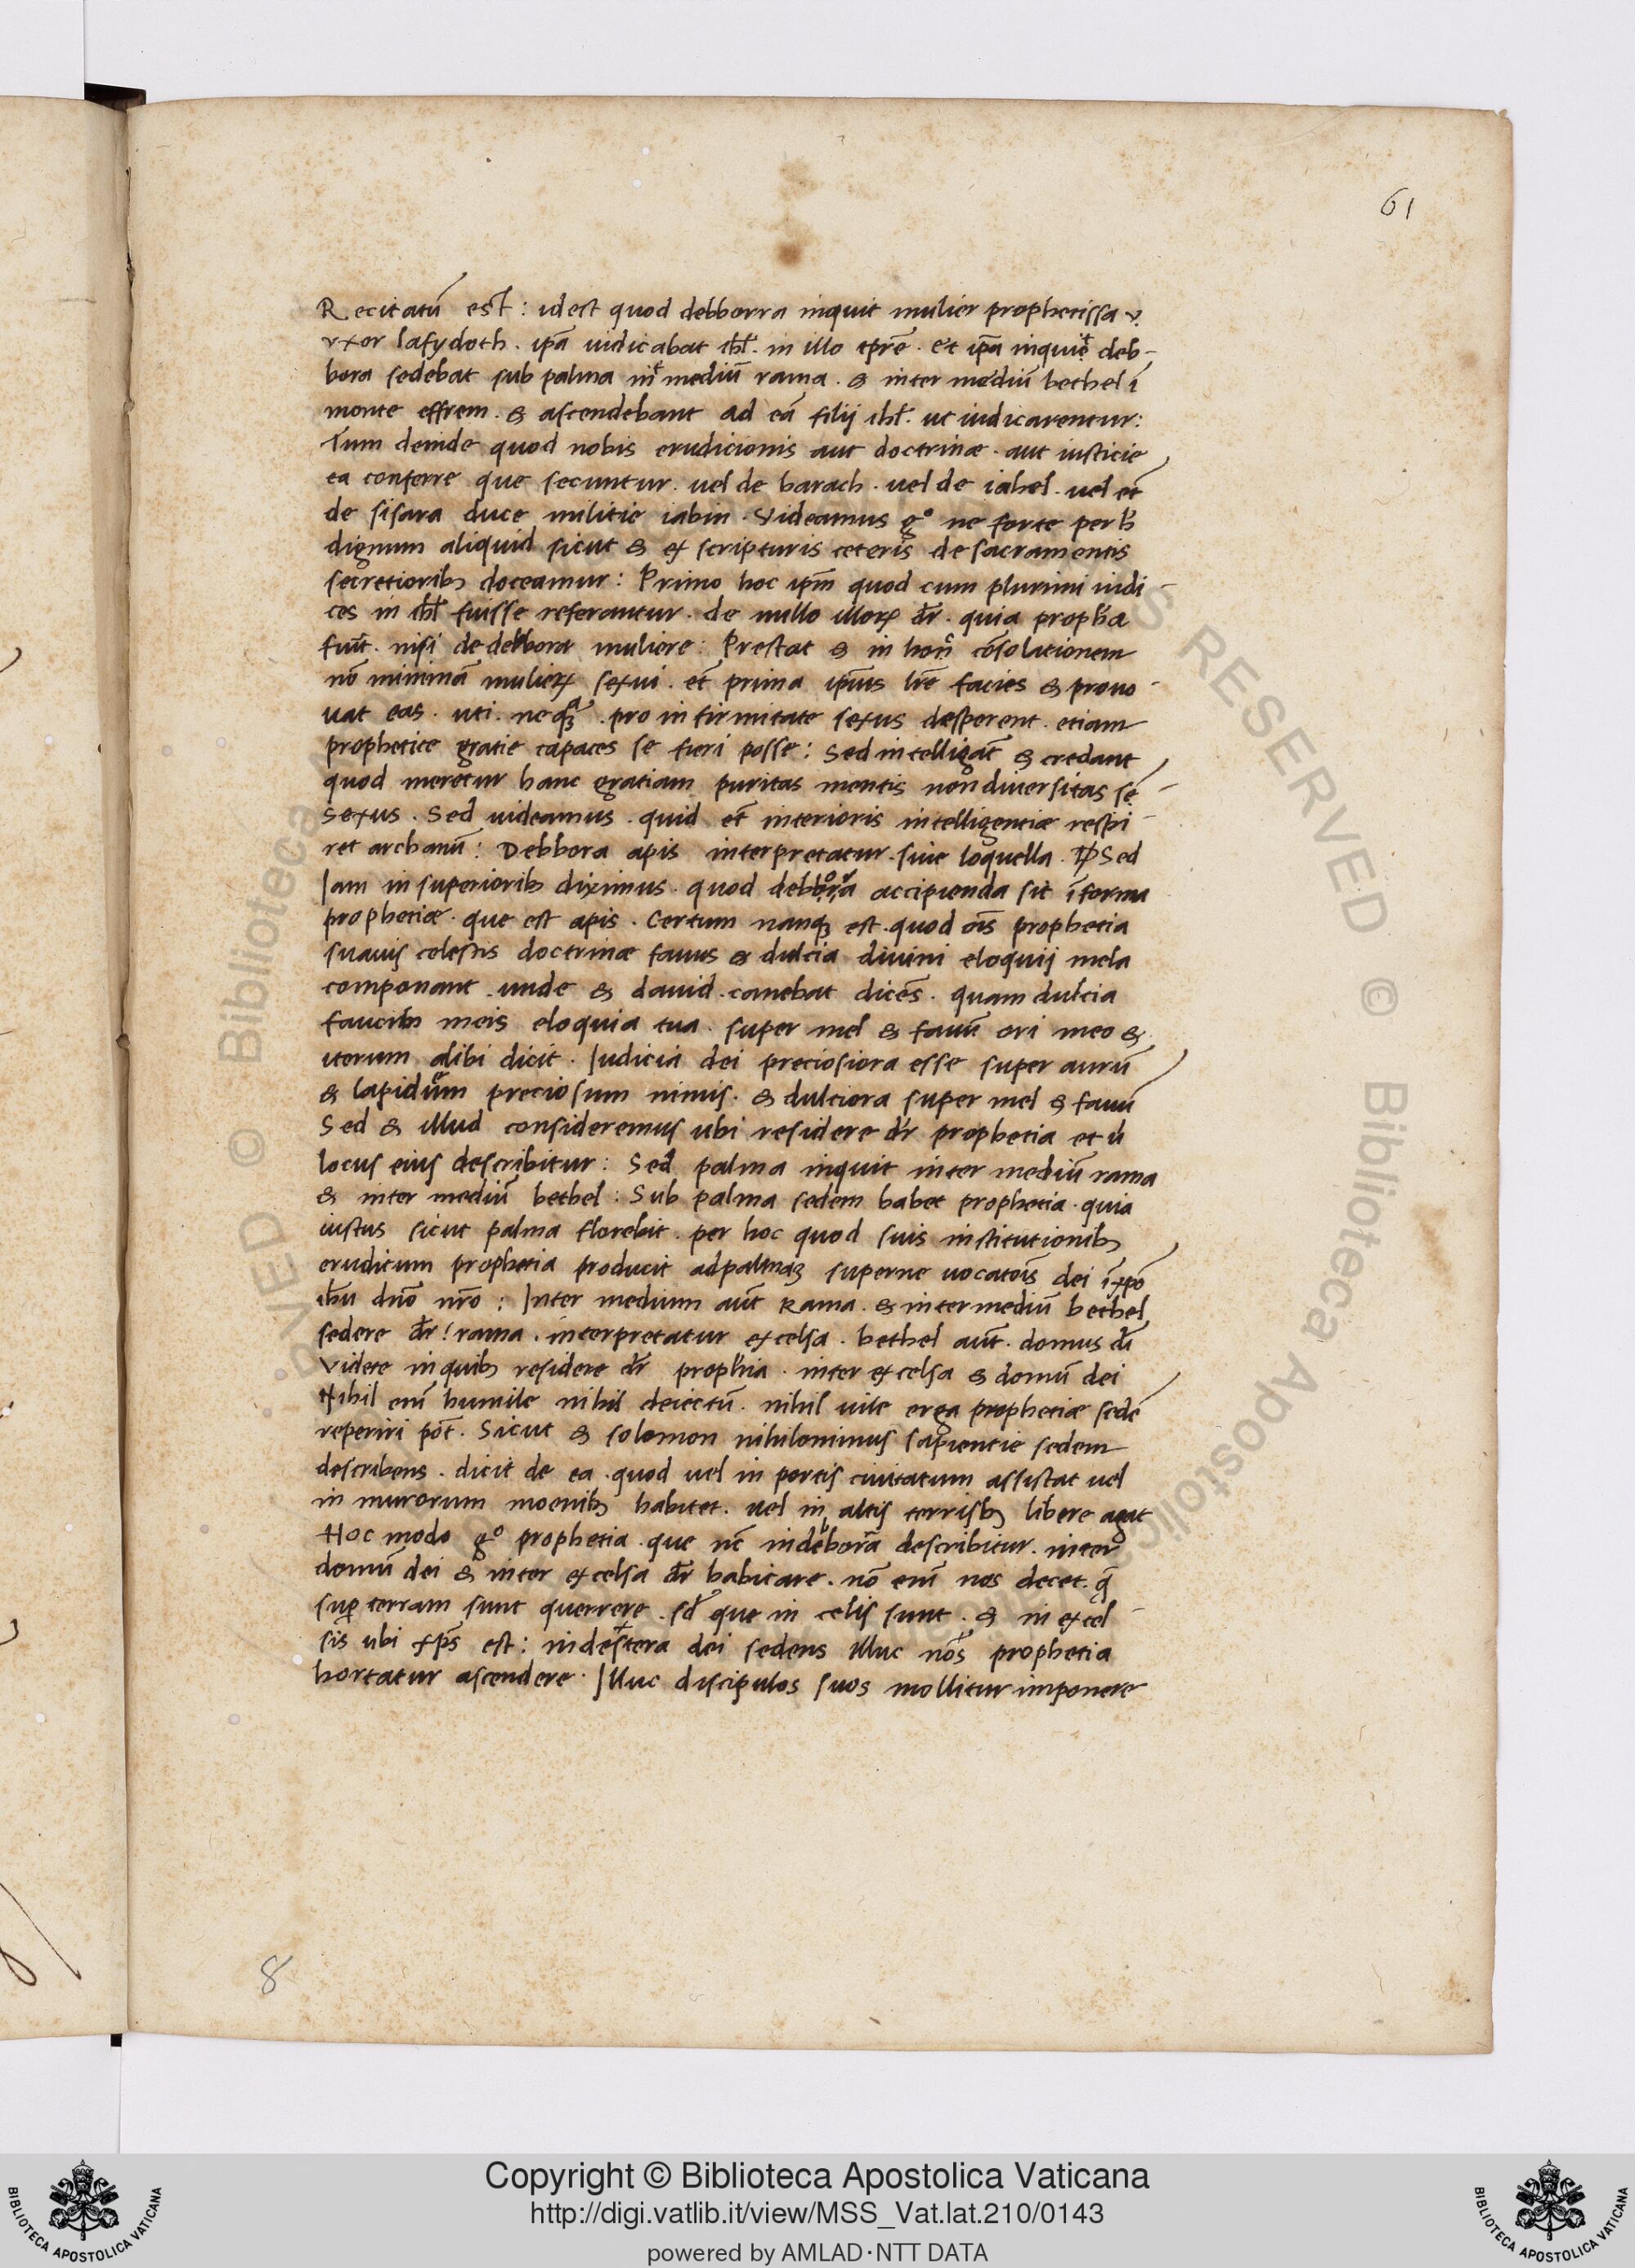 61
Recitatū est : id est quod debborra inquit mulier prophetissa v.
vxor lafydoth . ip̄a iudicabat ihl̄ . in illo tp̄re . et ip̄a inquit deb-
bora sedebat sub palma int̄ mediū rama . & inter mediū bethel ī
monte effrem . & ascendebant ad eā filij ihl̄ . ut iudicarentur :
Tum deinde quod nobis erudicionis aut doctrinæ . aut iusticie
ea conferre que secuntur . uel de barach . uel de iahel . uel et̄
de sisara duce militie iabin . Videamus gº ne forte per h̄
dignum aliquid sicut & ex scripturis ceteris de sacramentis
secretiorib; doceamur : Primo hoc ip̄m quod cum plurimi iudi-
ces in ihl̄ fuisse referantur . de nullo illoꝝ dr̄ . quia proph̄a
fuit̄ . nisi de debbora muliere : Prestat & in hoc cōsolationem
nō minimā mulieꝝ sexui . et̄ prima ip̄ius lr̄e facies & prouo-
uat eas . uti . neqꝫ . pro infirmitate sexus desperent . etiam
prophetice gratie capaces se fieri posse : Sed intelligāt & credant
quod meretur hanc gratiam puritas mentis non diuersitas se-
sexus . Sed uideamus . quid et̄ interioris intelligentiæ respi-
ret archanū : Debbora apis interpretatur . siue loquella . Sed
Iam in superiorib; diximus . quod debbora accipienda sit ī forma
prophetiæ . que est apis . Certum nanqꝫ est . quod oīs prophetia
suauis celestis doctrinæ fauus & dulcia diuini eloquij mela
componant . unde & dauid . canebat dicēs . quam dulcia
faucib; meis eloquia tua . super mel & fauū ori meo &
iterum alibi dicit . Iudicia dei preciosiora esse super aurū
& lapidem preciosum nimis . & dulciora super mel & fauū
Sed & illud consideremus ubi residere dr̄ prophetia et ū
locus eius describitur : Sed palma inquit inter mediū rama
& inter mediū bethel : Sub palma sedem habet prophetia . quia
iustus sicut palma florebit . per hoc quod suis institutionib;
eruditum prophetia producit ad palmaꝫ superne uocatōis dei ī xp̄o
ih̄u dn̄o nr̄o : Inter medium aūt Rama . & inter mediū bethel
sedere dr̄ ! rama . interpretatur excelsa . bethel aūt . domus dī
Videte in quib; residere dr̄ proph̄ia . inter excelsa & domū dei
Nihil enī humile nihil deiectū . nihil uile erga prophetiæ sedē
reperiri pōt . Sicut & solomon nihilominus sapientie sedem
describens . dicit de ea . quod uel in portis ciuitatum assistat uel
in murorum moenib; habitet . uel in altis terrisb; libere agat
Hoc modo gº prophetia . que nc̄ in debbora describitur . inter
domū dei & inter excelsa dr̄ habitare . nō enī nos decet . q̄
sup̄ terram sunt querrere . sd̄ que in celis sunt . & in excel-
sis ubi xp̄s est : in dextera dei sedens Illuc nos prophetia
hortatur ascendere . Illuc discipulos suos mollitur imponere
8
Copyright © Biblioteca Apostolica Vaticana
http://digi.vatlib.it/view/MSS_Vat.lat.210/0143
powered by AMLAD·NTT DATA
BIBLIOTECA APOSTOLICA VATICANA
BIBLIOTECA APOSTOLICA VATICANA